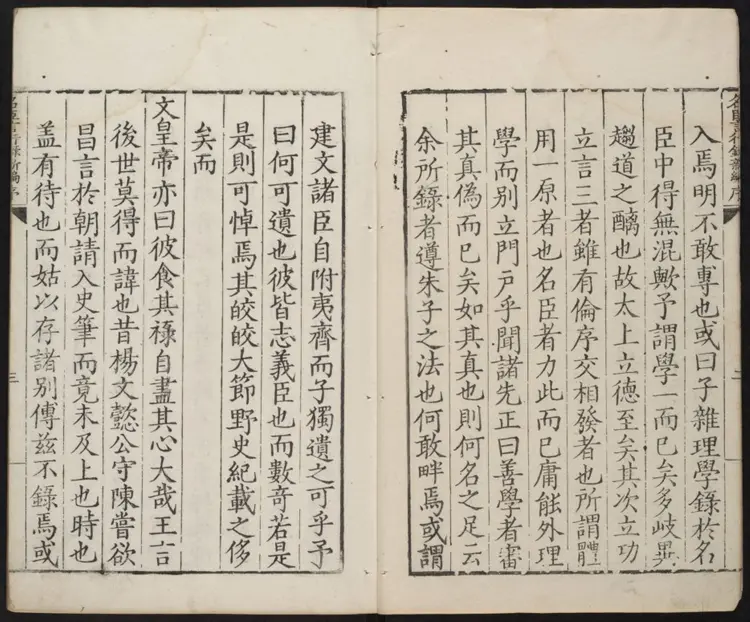 入焉明不敢專也或曰子雜理學錄於名
臣中得無混歟予謂學一而已矣多岐異
趨道之醨也故太上立德至矣其次立功
立言三者雖有倫序交相發者也所謂體
用一原者也名臣者力此而已庸能外理
學而別立門戶乎聞諸先正曰善學者審
其真僞而已矣如其真也則何名之足云
余所錄者遵朱子之法也何敢畔焉或謂
建文諸臣自附夷齊而子獨遺之可乎予
曰何可遺也彼皆志義臣也而數竒若是
是則可悼焉其皎皎大節野史紀載之侈
矣而
文皇帝亦曰彼食其祿自盡其心大哉王言
後世莫得而諱也昔楊文懿公守陳嘗欲
昌言於朝請入史筆而竟未及上也時也
盖有待也而姑以存諸別傳茲不錄焉或
名臣言行錄新編序
二
三